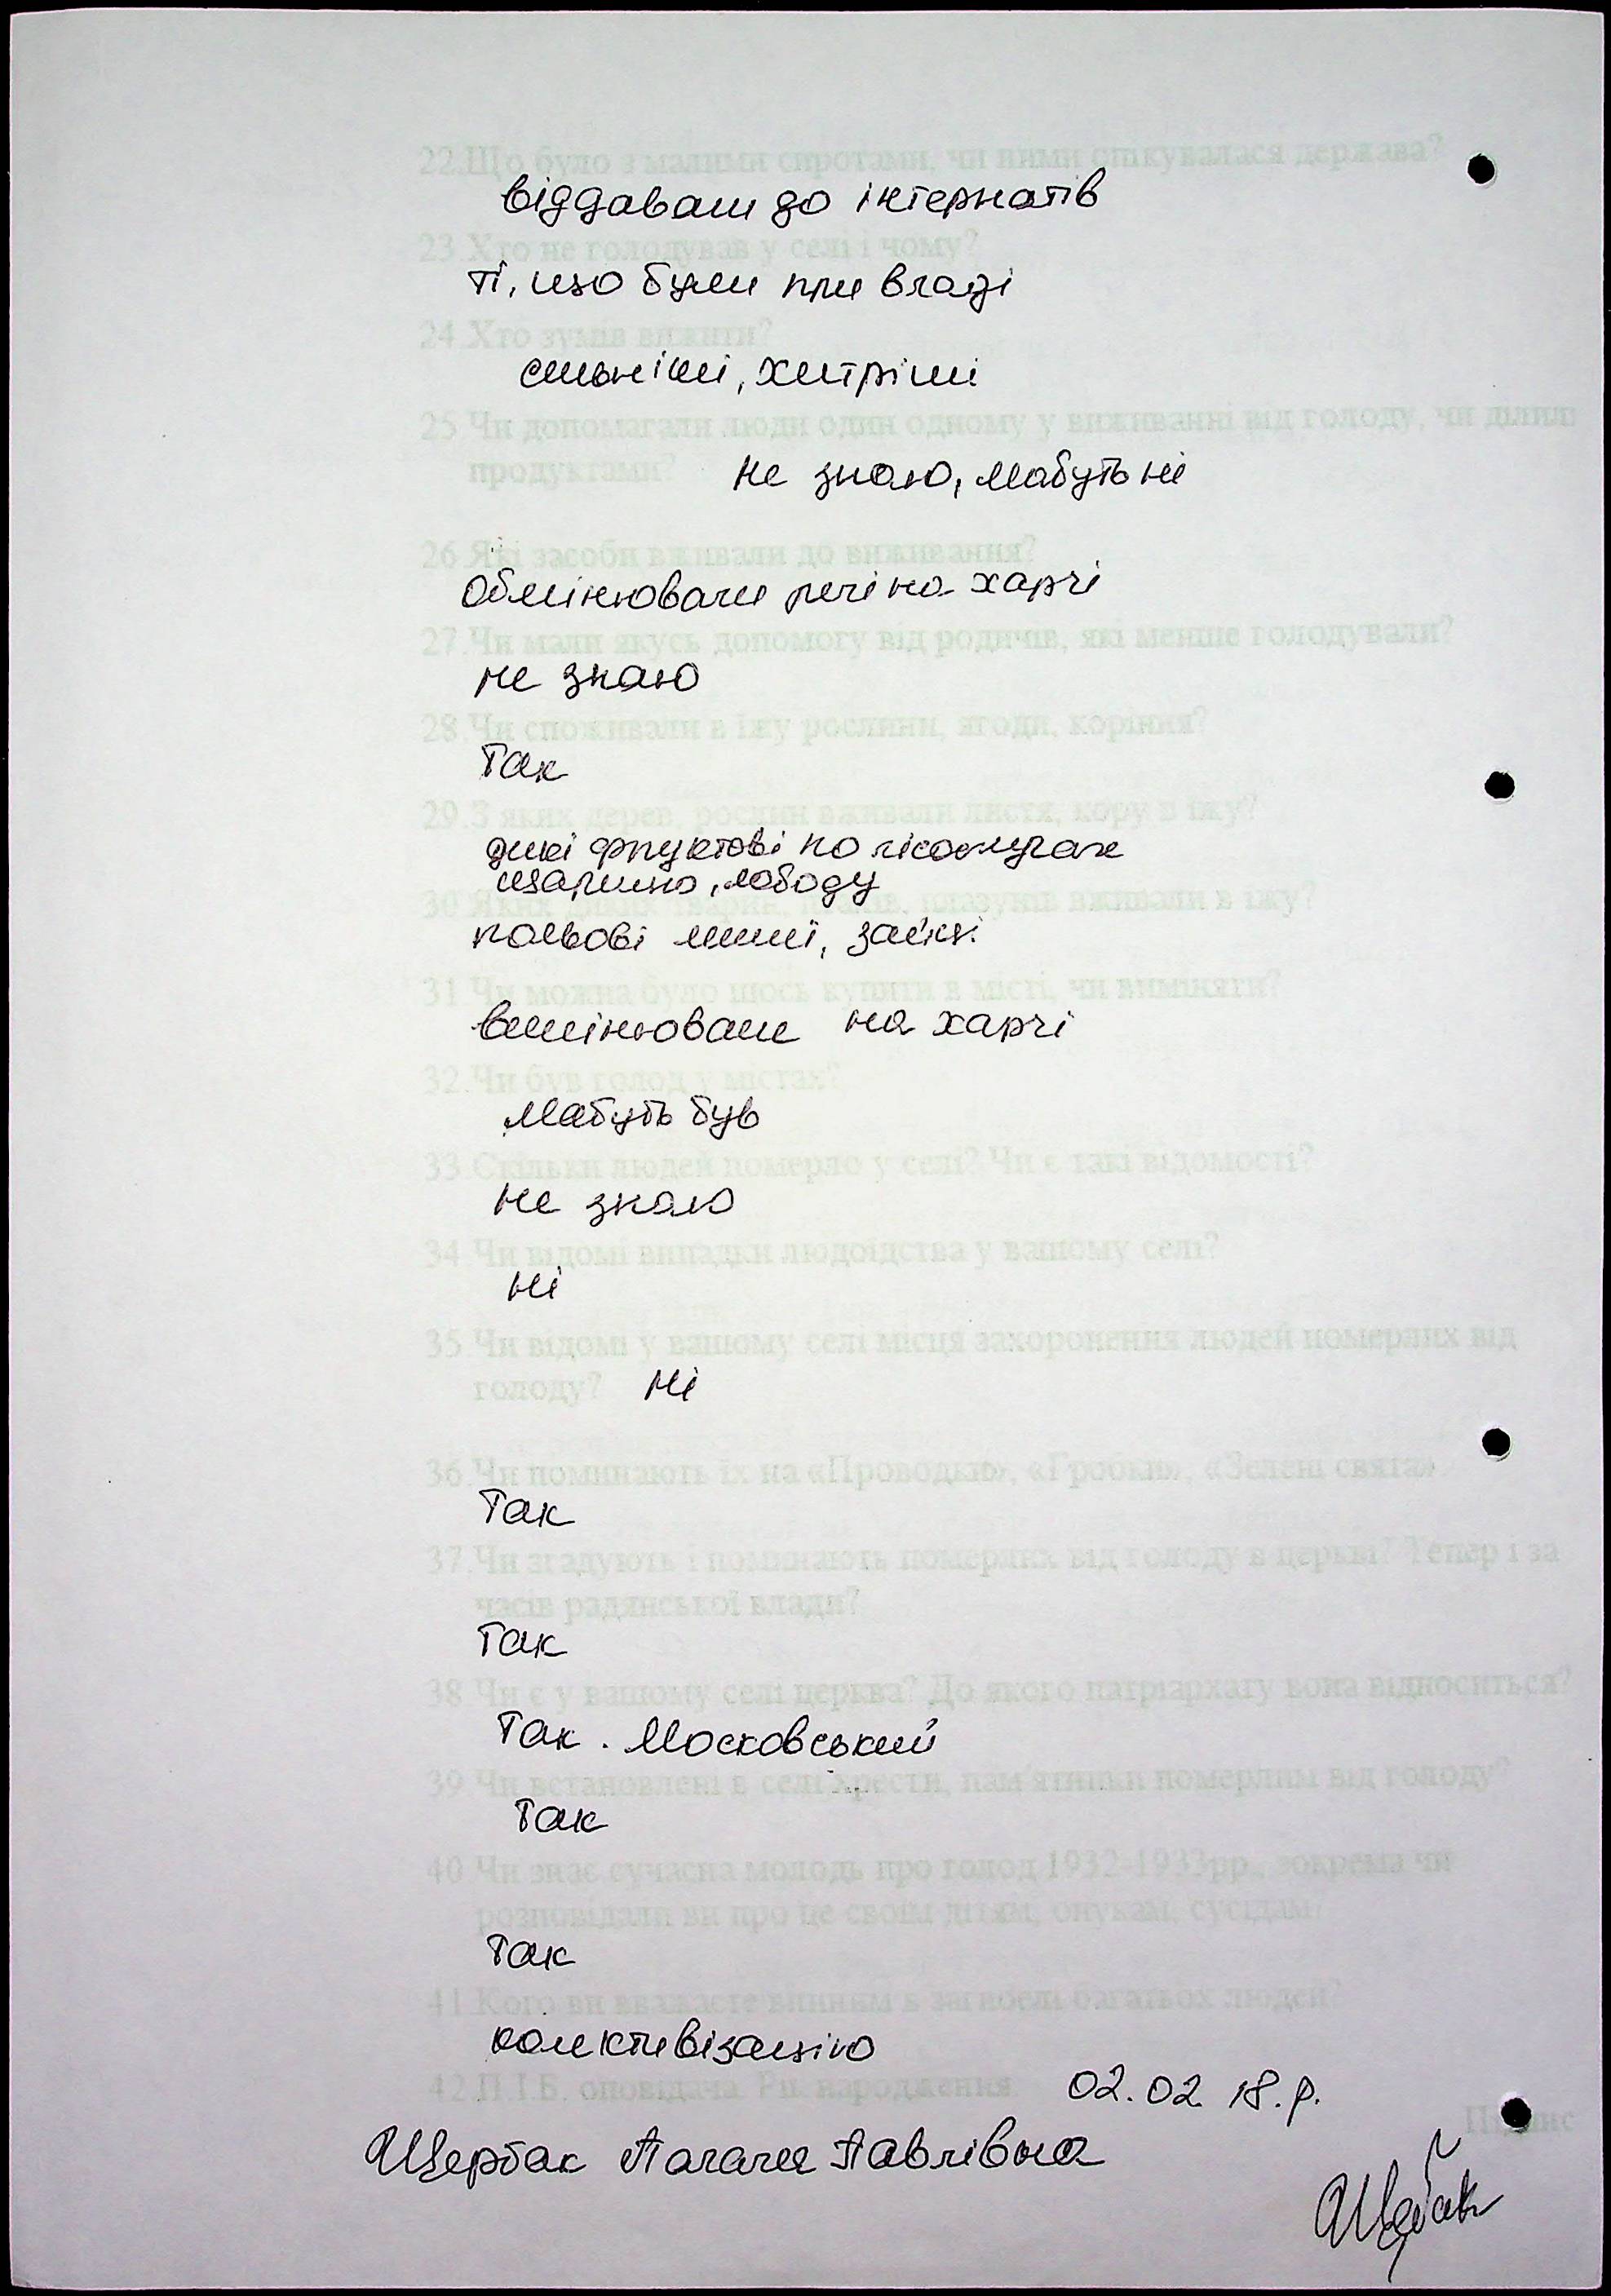 22.Що було з малими сиротами, чи ними опікувалася держава?
віддавали до інтернатів
23.Хто не голодував у селі і чому?
ті, що були при владі
24.Хто зумів вижити?
сильніші, хитріші
25.Чи допомагали люди один одному у виживанні від голоду, чи ділили
продуктами? Не знаю, мабуть ні
26.Які засоби вживали до виживання?
Обмінювали речі на харчі
27.Чи мали якусь допомогу від родичів, які менше голодували?
не знаю
28.Чи споживали в їжу рослини, ягоди, коріння?
Так
29.З яких дерев, рослин вживали листя, кору в їжу?
дикі фруктові по лісосмугах
лободу
30.Яких диких тварин, птахів, плазунів вживали в їжу?
польові миші, зайці
31.Чи можна було щось купити в місті, чи виміняти?
вимінювали на харчі
32.Чи був голод у містах?
Мабуть був
33.Скільки людей померло у селі? Чи є такі відомості?
не знаю
34.Чи відомі випадки людоїдства у вашому селі?
Ні
35.Чи відомі у вашому селі місця захоронення людей померлих від
голоду? Ні
36.Чи поминають їх на «Проводки», «Гробки», «Зелені свята»
Так
37.Чи згадують і поминають померлих від голоду в церкві? Тепер і за
часів радянської влади?
Так
38.Чи є у вашому селі церква? До якого патріархату вона відноситься?
Так. Московський
39.Чи встановлені в селі хрести, пам'ятники померлим від голоду?
Так
40.Чи знає сучасна молодь про голод 1932-1933рр., зокрема чи
розповідали ви про це своїм дітям, онукам, сусідам?
Так
41.Кого ви вважаєте винним в загибелі багатьох людей?
колективізацію
42.П.І.Б. оповідача. Рік народження. 02.02.18.р.
Підпис
Щербак Павлівна
Щербак